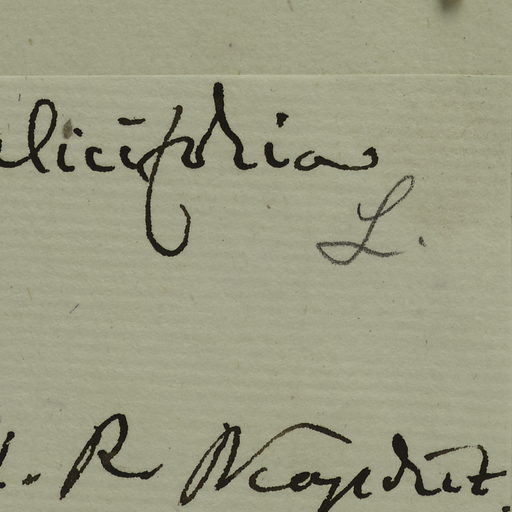 alicifolia
L.
R Neapolit.